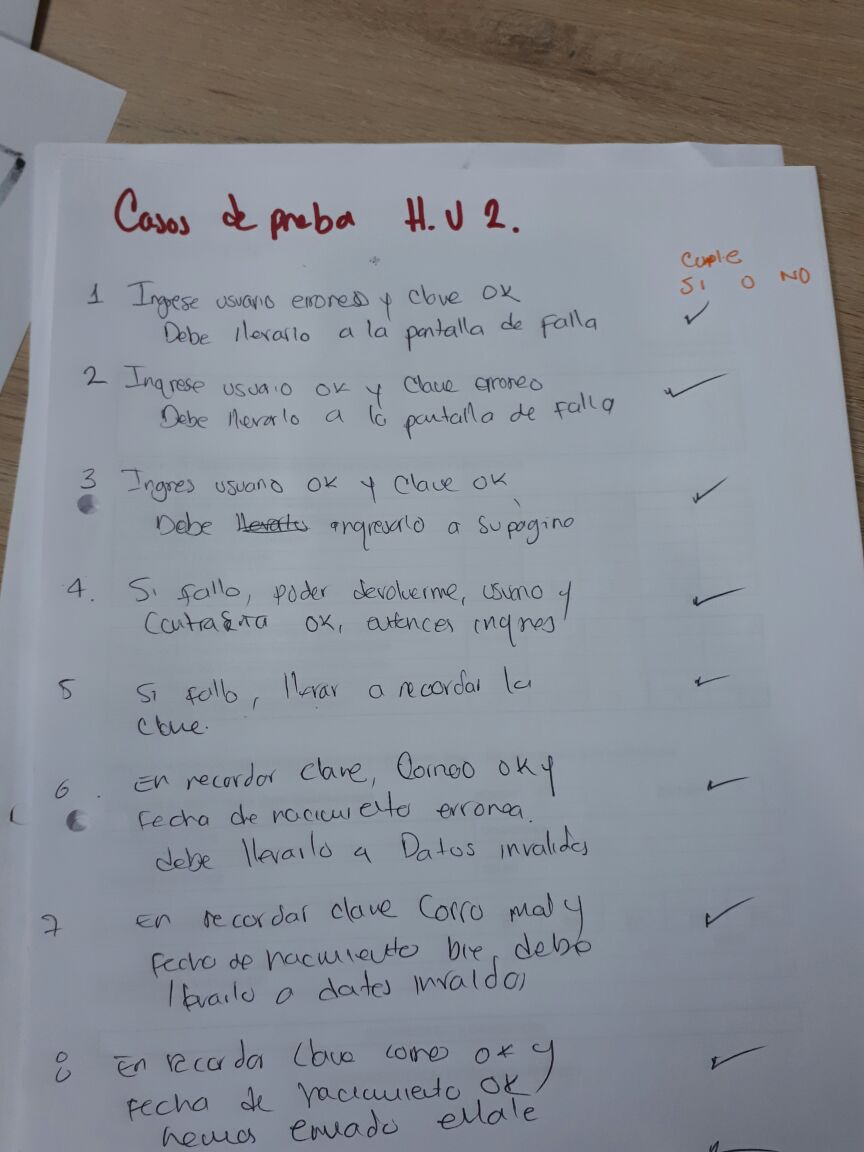 Casos de prueba H.U 2.
Cuple
SI O NO
1 Ingrese usuario erroneo y clave OK
Debe llevarlo a la pantalla de falla
2 Ingrese usuaio OK y Clave erroneo
Debe llevarlo a la pantalla de falla
3 Ingres usuario OK y Clave OK
Debe ingresarlo a su pagina
4. Si fallo, poder devolverme, usuario y
OK, entonces ingres
5 Si fallo, llevar a recordar la
clave.
6. En recordar clave, Correo OK y
Fecha de nacimiento erronea.
debe llevarlo a Datos invalidos
7 En recordar clave Corro mal y
Fecha de nacimiento bie, debe
llevarlo a datos invalidos
8 En recordar clave correo OK y
Fecha de nacimiento OK
hemos enviado